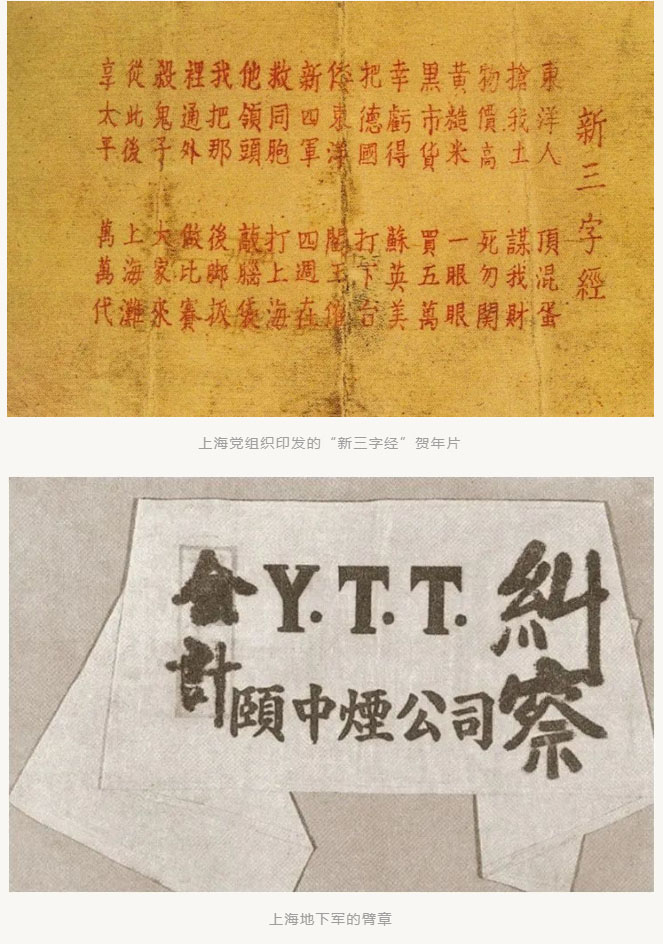 新三字經
東洋人 頂混蛋
搶我土 謀我財
物價高 死勿関
黃糙米 一眼眼
黑市貨 買五萬
幸虧得 蘇英美
把德國 打下台
東洋 閻王
新四軍 四週在
救同胞 打上海
他領頭 敲腦袋
我把那 後脚扳
裡通外 做比賽
殺鬼子 大家來
從此後 上海灘
享太平 萬萬代
上海党组织印发的“新三字经”贺年片
糾察
Y.T.T.
頤中煙公司
會計
上海地下军的臂章